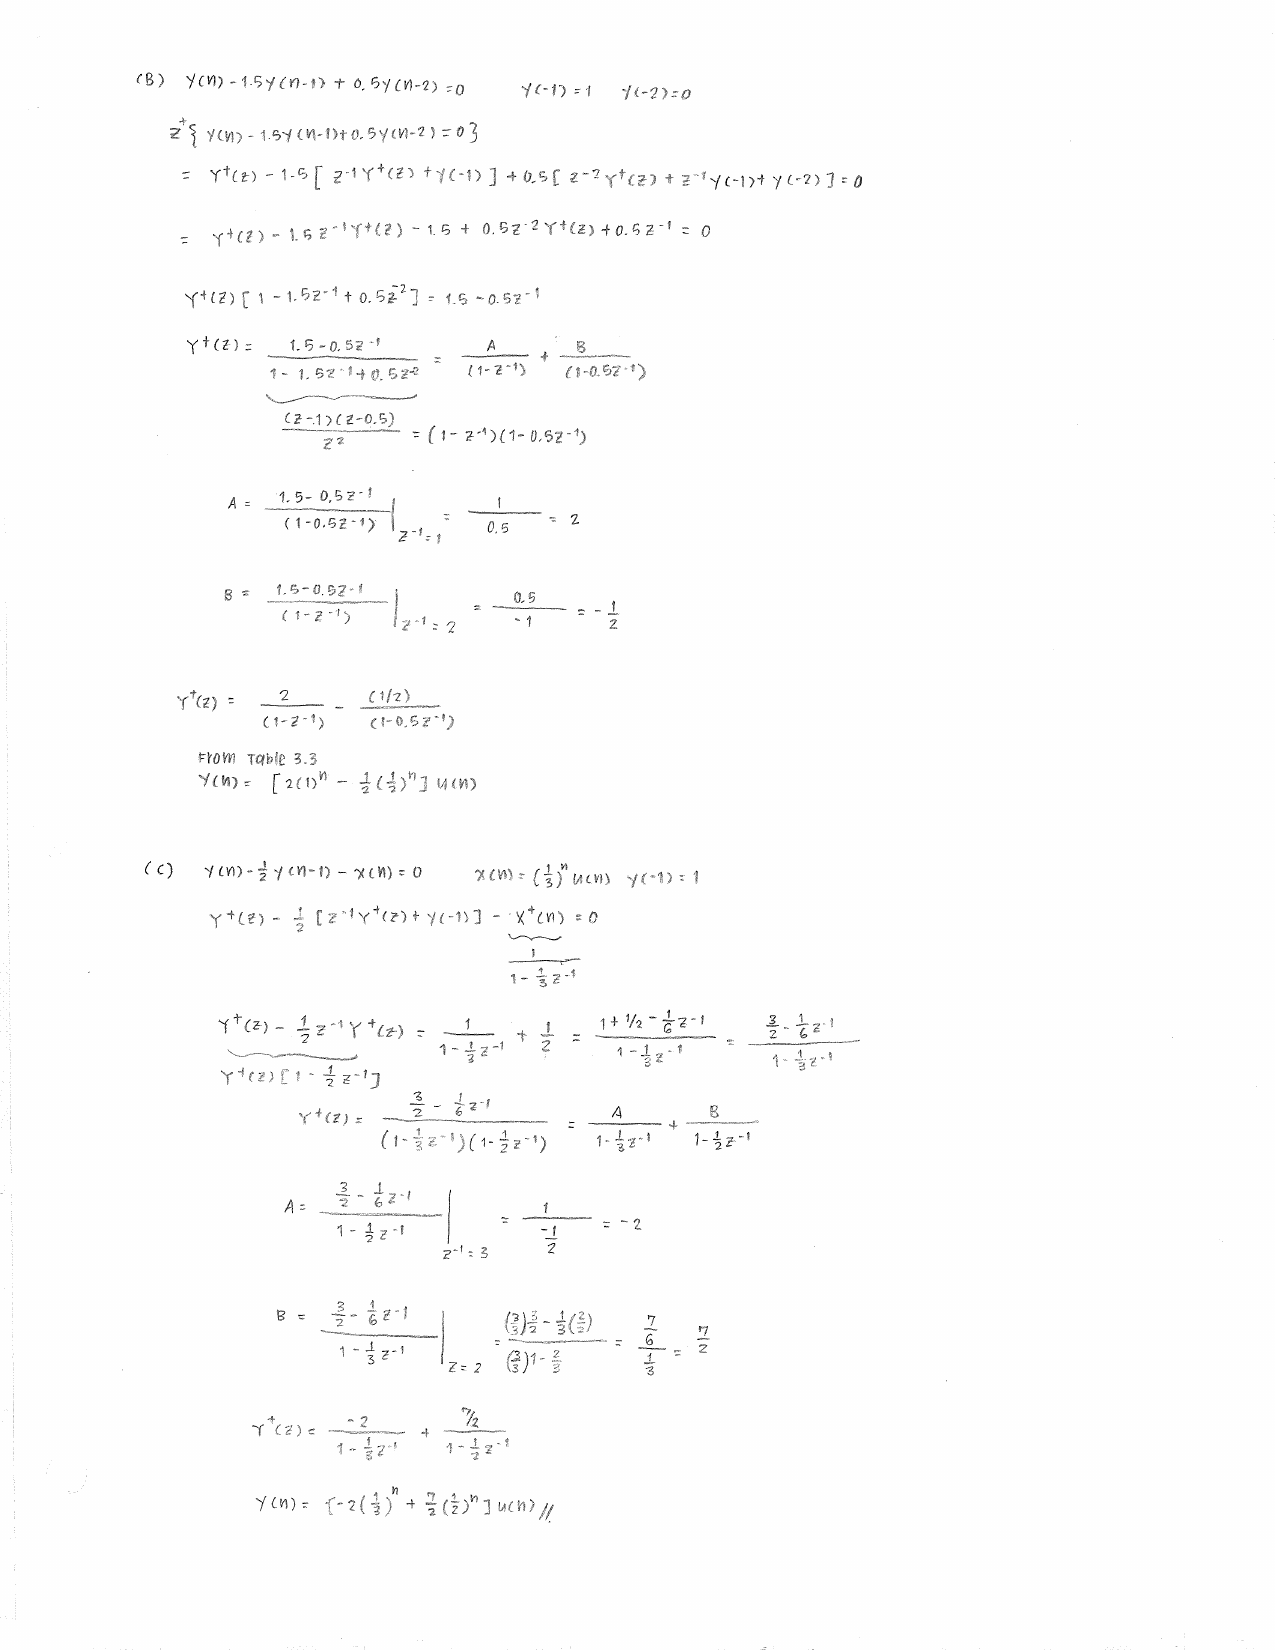 (B) y(n) - 1.5y(n-1) + 0.5y(n-2) = 0 y(-1) = 1 y(-2) = 0
z⁺{ y(n) - 1.5y(n-1) + 0.5y(n-2) = 0 }
= Y⁺(z) - 1.5[ z⁻¹Y⁺(z) + y(-1) ] + 0.5[ z⁻²Y⁺(z) + z⁻¹y(-1) + y(-2) ] = 0
= Y⁺(z) - 1.5z⁻¹Y⁺(z) - 1.5 + 0.5z⁻²Y⁺(z) + 0.5z⁻¹ = 0
Y⁺(z)[ 1 - 1.5z⁻¹ + 0.5z⁻² ] = 1.5 - 0.5z⁻¹
Y⁺(z) = (1.5 - 0.5z⁻¹)/(1 - 1.5z⁻¹ + 0.5z⁻²) = A/(1-z⁻¹) + B/(1-0.5z⁻¹)
(z-.1)(z-0.5)/z² = (1 - z⁻¹)(1 - 0.5z⁻¹)
A = (1.5 - 0.5z⁻¹)/(1-0.5z⁻¹) | z⁻¹=1 = 1/0.5 = 2
B = (1.5 - 0.5z⁻¹)/(1-z⁻¹) | z⁻¹=2 = 0.5/-1 = -1/2
Y⁺(z) = 2/(1-z⁻¹) - (1/2)/(1-0.5z⁻¹)
From Table 3.3
y(n) = [ 2(1)ⁿ - 1/2 (1/2)ⁿ ] u(n)
(C) y(n) - 1/2 y(n-1) - x(n) = 0 x(n) = (1/3)ⁿ u(n) y(-1) = 1
Y⁺(z) - 1/2 [ z⁻¹Y⁺(z) + y(-1) ] - X⁺(n) = 0
1/(1 - 1/3 z⁻¹)
Y⁺(z) - 1/2 z⁻¹Y⁺(z) = 1/(1 - 1/3 z⁻¹) + 1/2 = (1 + 1/2 - 1/6 z⁻¹)/(1 - 1/3 z⁻¹) = (3/2 - 1/6 z⁻¹)/(1 - 1/3 z⁻¹)
Y⁺(z)[ 1 - 1/2 z⁻¹ ]
Y⁺(z) = (3/2 - 1/6 z⁻¹)/((1 - 1/3 z⁻¹)(1 - 1/2 z⁻¹)) = A/(1 - 1/3 z⁻¹) + B/(1 - 1/2 z⁻¹)
A = (3/2 - 1/6 z⁻¹)/(1 - 1/2 z⁻¹) | z⁻¹=3 = 1/(-1/2) = -2
B = (3/2 - 1/6 z⁻¹)/(1 - 1/3 z⁻¹) | z=2 = ((3/3)3/2 - 1/3(2/2))/((3/3)1 - 2/3) = (7/6)/(1/3) = 7/2
Y⁺(z) = -2/(1 - 1/3 z⁻¹) + (7/2)/(1 - 1/2 z⁻¹)
y(n) = [ -2(1/3)ⁿ + 7/2 (1/2)ⁿ ] u(n) //